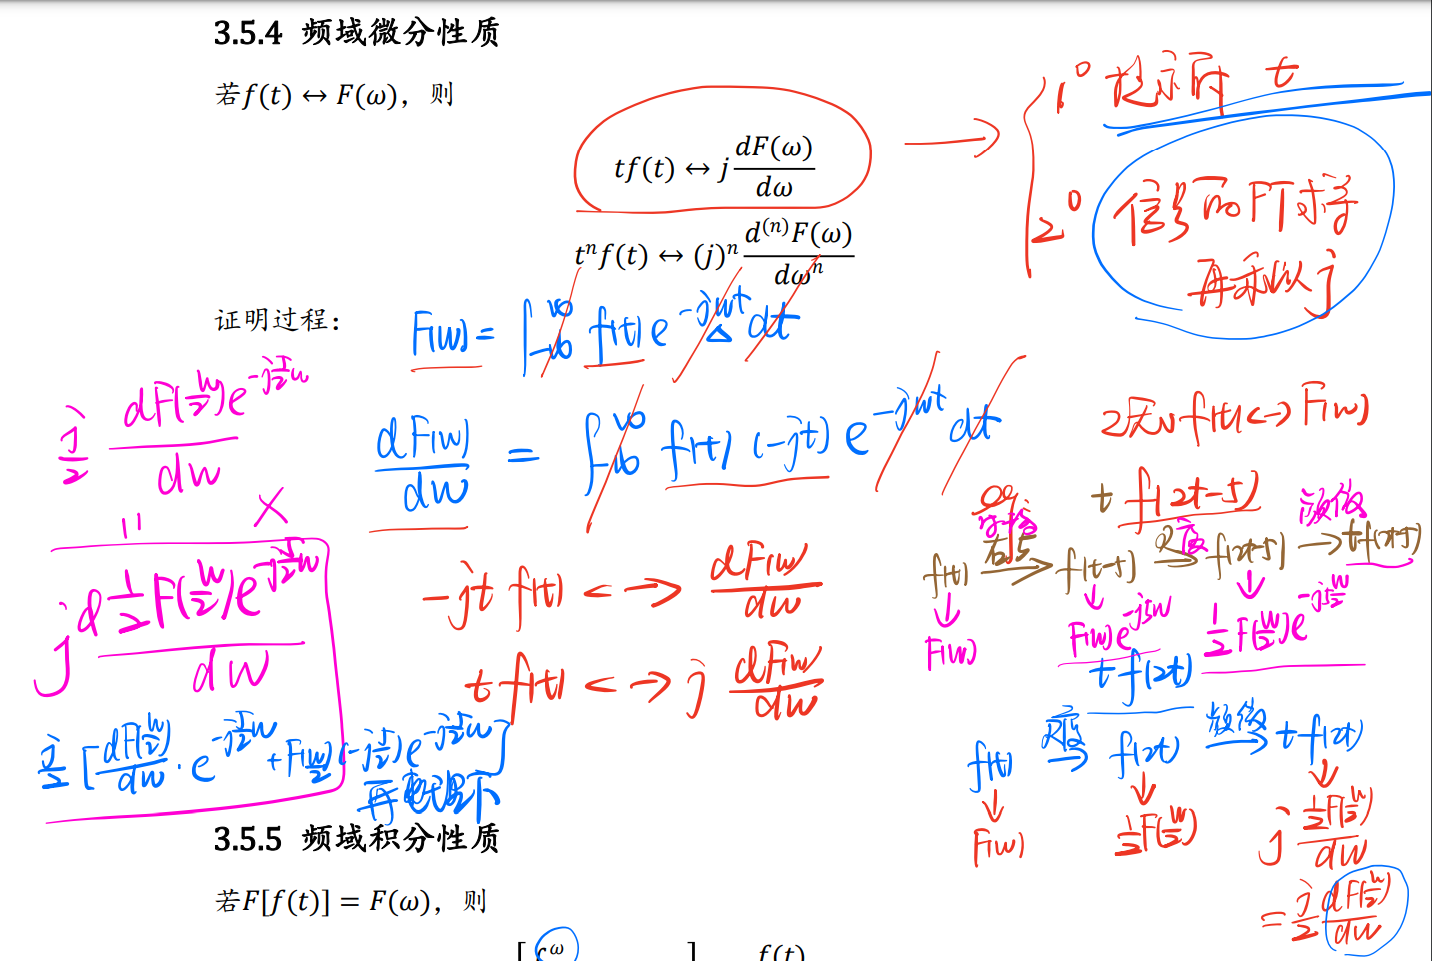 3.5.4 频域微分性质
若f(t) ↔ F(ω)，则
tf(t) ↔ j dF(ω)/dω
1° 提示时 t
2° 信号的FT求导
再乘以j
tⁿf(t) ↔ (j)ⁿ d⁽ⁿ⁾F(ω)/dωⁿ
证明过程：
F(w) = ∫_{-∞}^{∞} f(t) e^{-jwt} dt
dF(w)/dw = ∫_{-∞}^{∞} f(t) (-jt) e^{-jwt} dt
-jt f(t) <—> dF(w)/dw
t f(t) <—> j dF(w)/dw
j/2 dF(w/2)e^{-j5/2w}/dw
= ×
j d 1/2 F(w/2)e^{-j5/2w}/dw
j/2 [dF(w/2)/dw · e^{-j5/2w} + F(w/2)(-j5/2)e^{-j5/2w}]
f(t) <-> F(w)
t f(2t-5)
f(t) → f(t-5) → f(2t-5) → tf(2t-5)
频微
F(w) F(w)e^{-j5w} 1/2 F(w/2)e^{-j5w/2}
t f(2t)
f(t) → f(2t) 频微 → t f(2t)
F(w) 1/2 F(w/2) j 1/2 F(w/2)/dw
= j/2 dF(w/2)/dw
3.5.5 频域积分性质
若F[f(t)] = F(ω)，则
ω f(t)